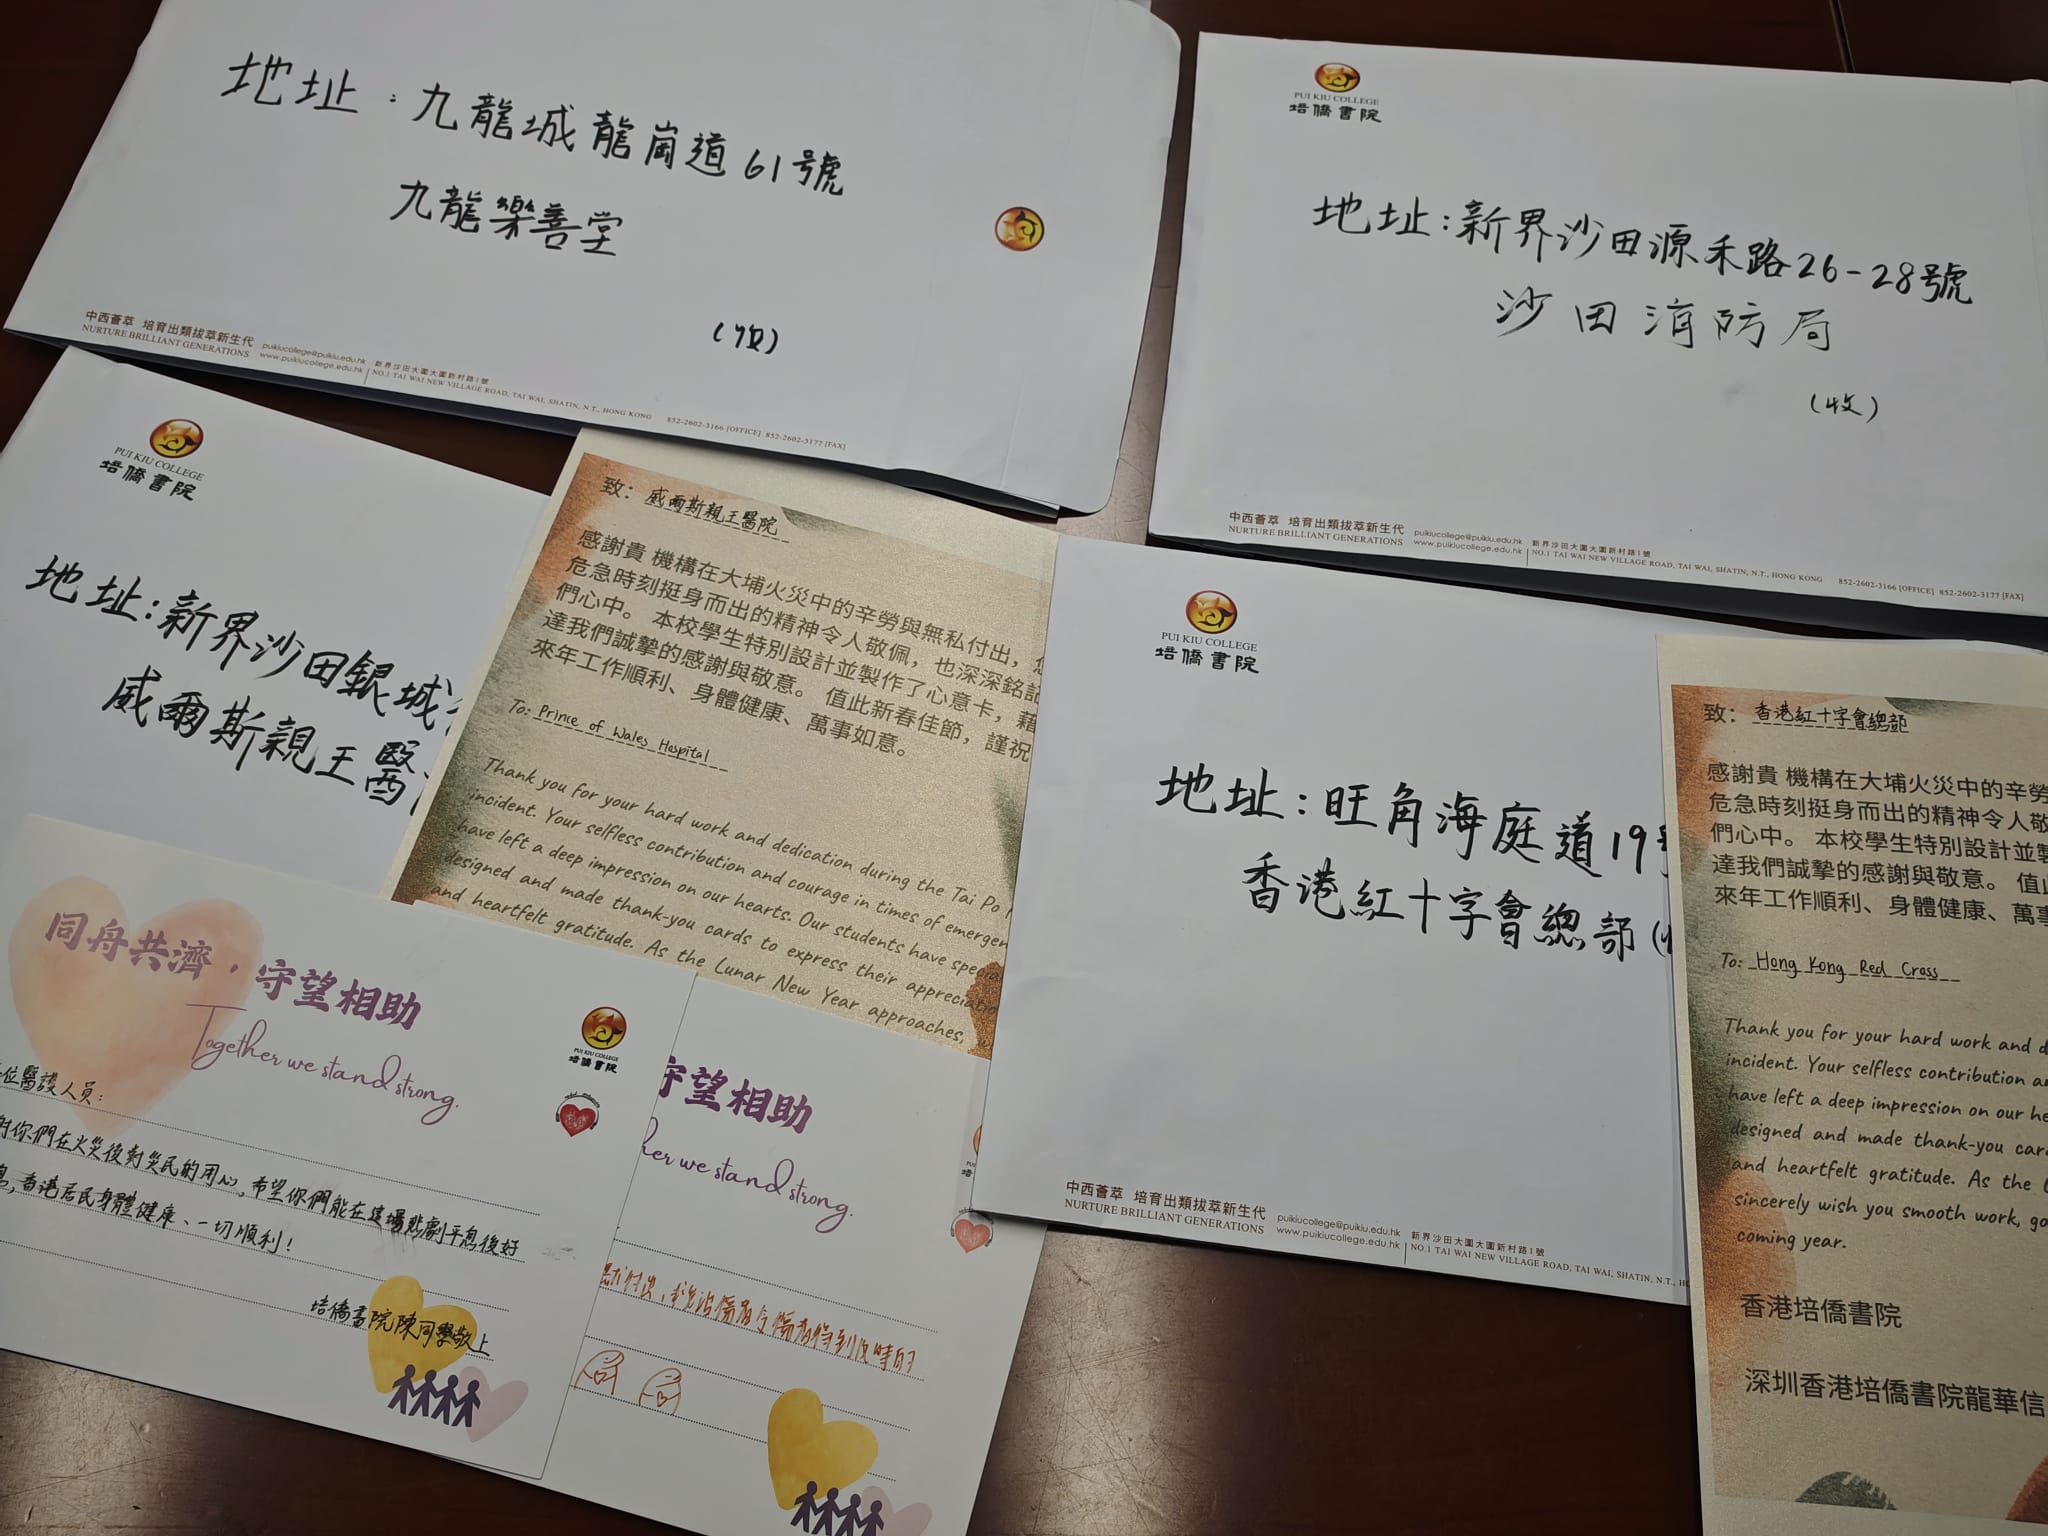 地址：九龍城龍崗道61號
九龍樂善堂
(收)
中西薈萃 培育出類拔萃新生代
NURTURE BRILLIANT GENERATIONS
puikiucollege@puikiu.edu.hk
www.puikiucollege.edu.hk
新界沙田大圍大圍新村路1號
NO.1 TAI WAI NEW VILLAGE ROAD, TAI WAI, SHATIN, N.T., HONG KONG
852-2602-3166 [OFFICE] 852-2602-3177 [FAX]
PUI KIU COLLEGE
培僑書院
地址：新界沙田源禾路26-28號
沙田消防局
(收)
中西薈萃 培育出類拔萃新生代
NURTURE BRILLIANT GENERATIONS
puikiucollege@puikiu.edu.hk
www.puikiucollege.edu.hk
新界沙田大圍大圍新村路1號
NO.1 TAI WAI NEW VILLAGE ROAD, TAI WAI, SHATIN, N.T., HONG KONG
852-2602-3166 [OFFICE] 852-2602-3177 [FAX]
PUI KIU COLLEGE
培僑書院
地址：新界沙田銀城
威爾斯親王醫
致：威爾斯親王醫院
感謝貴 機構在大埔火災中的辛勞與無私付出，
危急時刻挺身而出的精神令人敬佩，也深深銘記
們心中。 本校學生特別設計並製作了心意卡，藉
達我們誠摯的感謝與敬意。 值此新春佳節，謹祝
來年工作順利、身體健康、萬事如意。
To: Prince of Wales Hospital
Thank you for your hard work and dedication during the Tai Po
incident. Your selfless contribution and courage in times of emergen
have left a deep impression on our hearts. Our students have specia
designed and made thank-you cards to express their appreciatio
and heartfelt gratitude. As the Lunar New Year approaches,
PUI KIU COLLEGE
培僑書院
地址：旺角海庭道19
香港紅十字會總部
中西薈萃 培育出類拔萃新生代
NURTURE BRILLIANT GENERATIONS
puikiucollege@puikiu.edu.hk
www.puikiucollege.edu.hk
新界沙田大圍大圍新村路1號
NO.1 TAI WAI NEW VILLAGE ROAD, TAI WAI, SHATIN, N.T.,
致：香港紅十字會總部
感謝貴 機構在大埔火災中的辛勞
危急時刻挺身而出的精神令人敬
們心中。 本校學生特別設計並製
達我們誠摯的感謝與敬意。 值此
來年工作順利、身體健康、萬事
To: Hong Kong Red Cross
Thank you for your hard work and d
incident. Your selfless contribution a
have left a deep impression on our he
designed and made thank-you car
and heartfelt gratitude. As the
sincerely wish you smooth work, go
coming year.
香港培僑書院
深圳香港培僑書院龍華信
同舟共濟，守望相助
Together we stand strong.
PUI KIU COLLEGE
培僑書院
位醫護人員：
你們在火災後對災民的用心，希望你們能在這場悲劇平息後好
息，香港居民身體健康、一切順利！
培僑書院陳同學敬上
守望相助
her we stand strong.
付出，救治傷者令傷者得到及時的